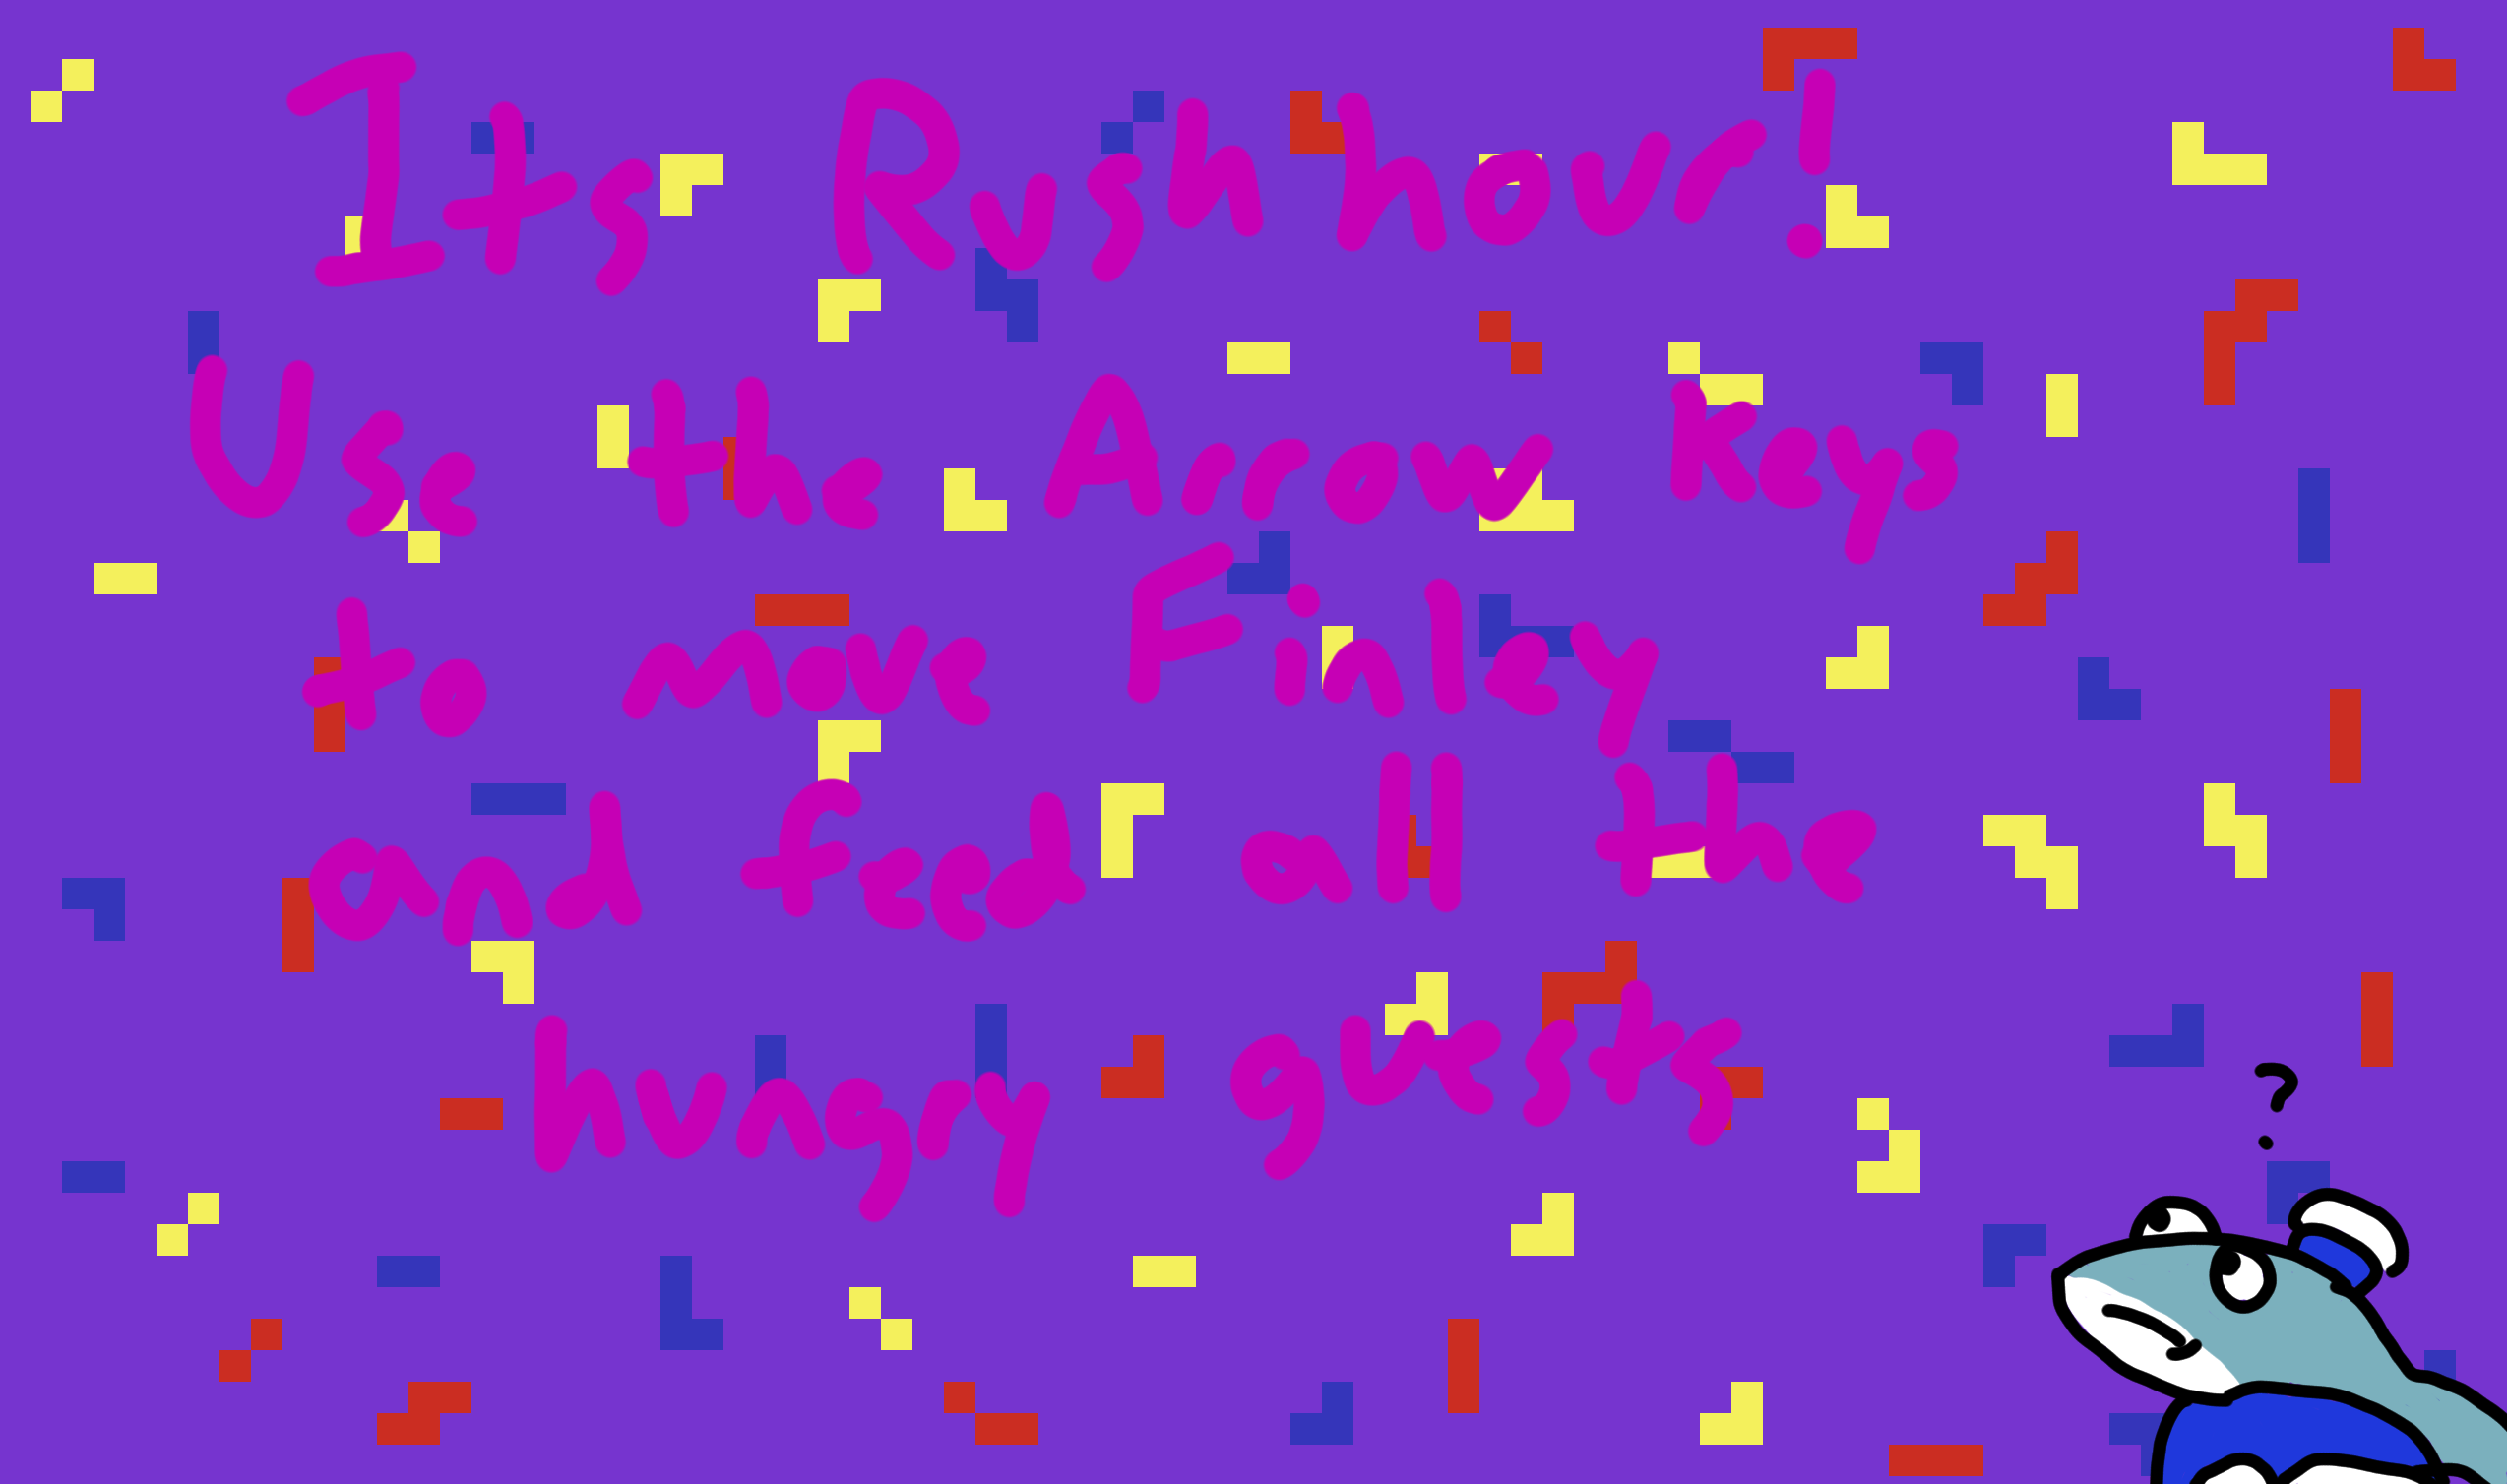 Its Rush hour!
Use the Arrow Keys
to move Finley
and feed all the
hungry guests
?